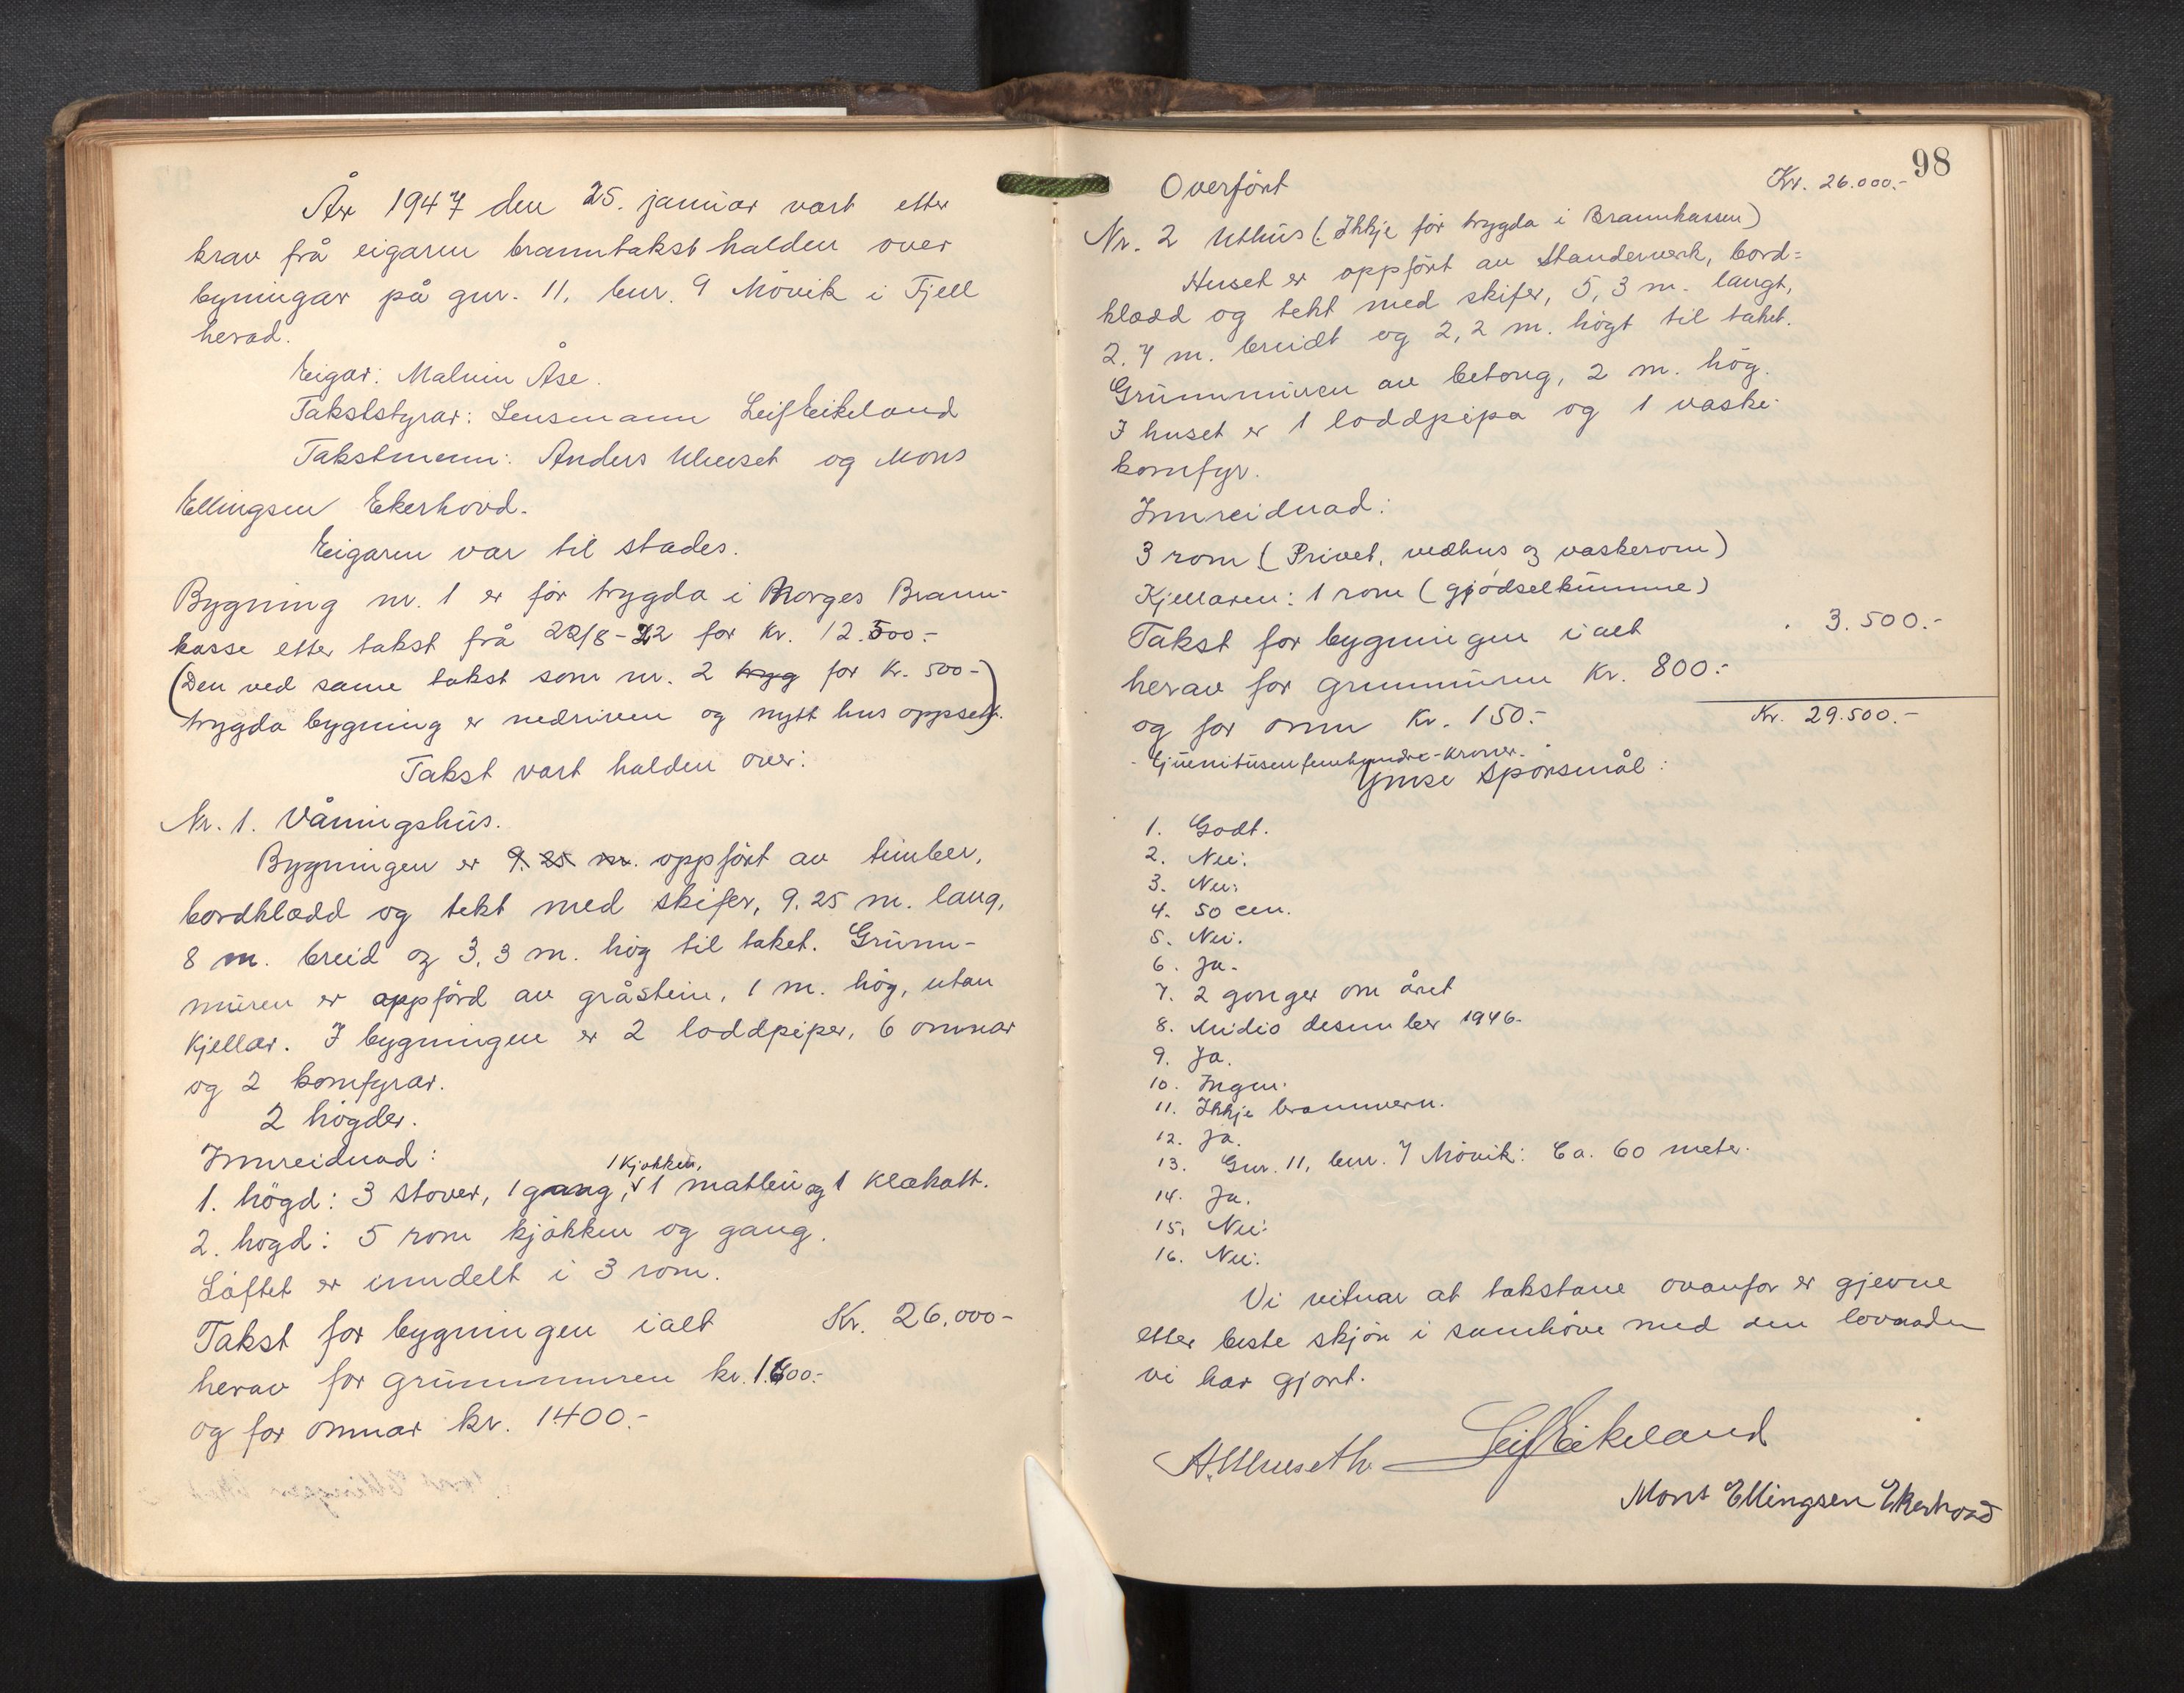 År 1947 den 25. januar vart etter
krav frå eigaren branntakst halden over
bygningar på gnr. 11, bnr. 9 Møvik i Fjell
herad.
Eigar: Malvin Åse.
Takststyrar: Lensmann Leif Eikeland
Takstmenn: Anders Ulveset og Mons
Ellingsen Ekerhovd.
Eigaren var til stades.
Bygning nr. 1 er för trygda i Norges Brann-
kasse etter takst frå 22/8-22 for kr. 12.500.-
(Den ved same takst som nr. 2 tryg for kr. 500-
trygda bygning er nedriven og nytt hus oppsett.)
Takst vart halden over:
Nr. 1. Våningshus.
Bygningen er 9.25 m. oppfört av timber,
bordklædd og tekt med skifer, 9.25 m. lang,
8 m. breid og 3,3 m. høg til taket. Grunn-
muren er oppförd av gråstein, 1 m. høg, utan
kjellar. I bygningen er 2 loddpiper, 6 omnar
og 2 komfyrar.
2 högder.
Innreidnad:
1 kjøkken,
1. högd: 3 stover, 1 gang, 1 matbu og 1 klekott.
2. högd: 5 rom kjøkken og gang.
Loftet er inndelt i 3 rom.
Takst for bygningen ialt Kr. 26.000-
herav for grunnmuren kr. 1.600.-
og for omnar kr. 1400.-
98
Overfört Kr. 26.000.-
Nr. 2 Uthus (Ikkje för trygda i Brannkassen)
Huset er oppfört av standerverk, bord=
klædd og tekt med skifer, 5,3 m. langt,
2.7 m. breidt og 2,2 m. högt til taket.
Grunnmuren av betong, 2 m. hög.
I huset er 1 loddpipa og 1 vaske-
komfyr.
Innreidnad:
3 rom (Privet, vedhus og vaskerom)
Kjellaren: 1 rom (gjødselkumme)
Takst for bygningen ialt 3.500.-
herav for grunnmuren kr. 800.-
og for omn kr. 150.-
Kr. 29.500.-
- tjuenitusenfemhundre-kroner.
Ymse Spörsmål:
1. Godt.
2. Nei.
3. Nei.
4. 50 cm.
5. Nei.
6. Ja.
7. 2 gonger om året
8. Midio desember 1946.
9. Ja.
10. Ingen.
11. Ikkje brannvern.
12. Ja.
13. Gnr. 11, bnr. 7 Møvik: Ca. 60 meter.
14. Ja.
15. Nei.
16. Nei.
Vi vitnar at takstane ovanfor er gjevne
etter beste skjön i samhöve med den lovnaden
vi har gjort.
Leif Eikeland
A. Ulveseth
Mons Ellingsen Ekerhovd